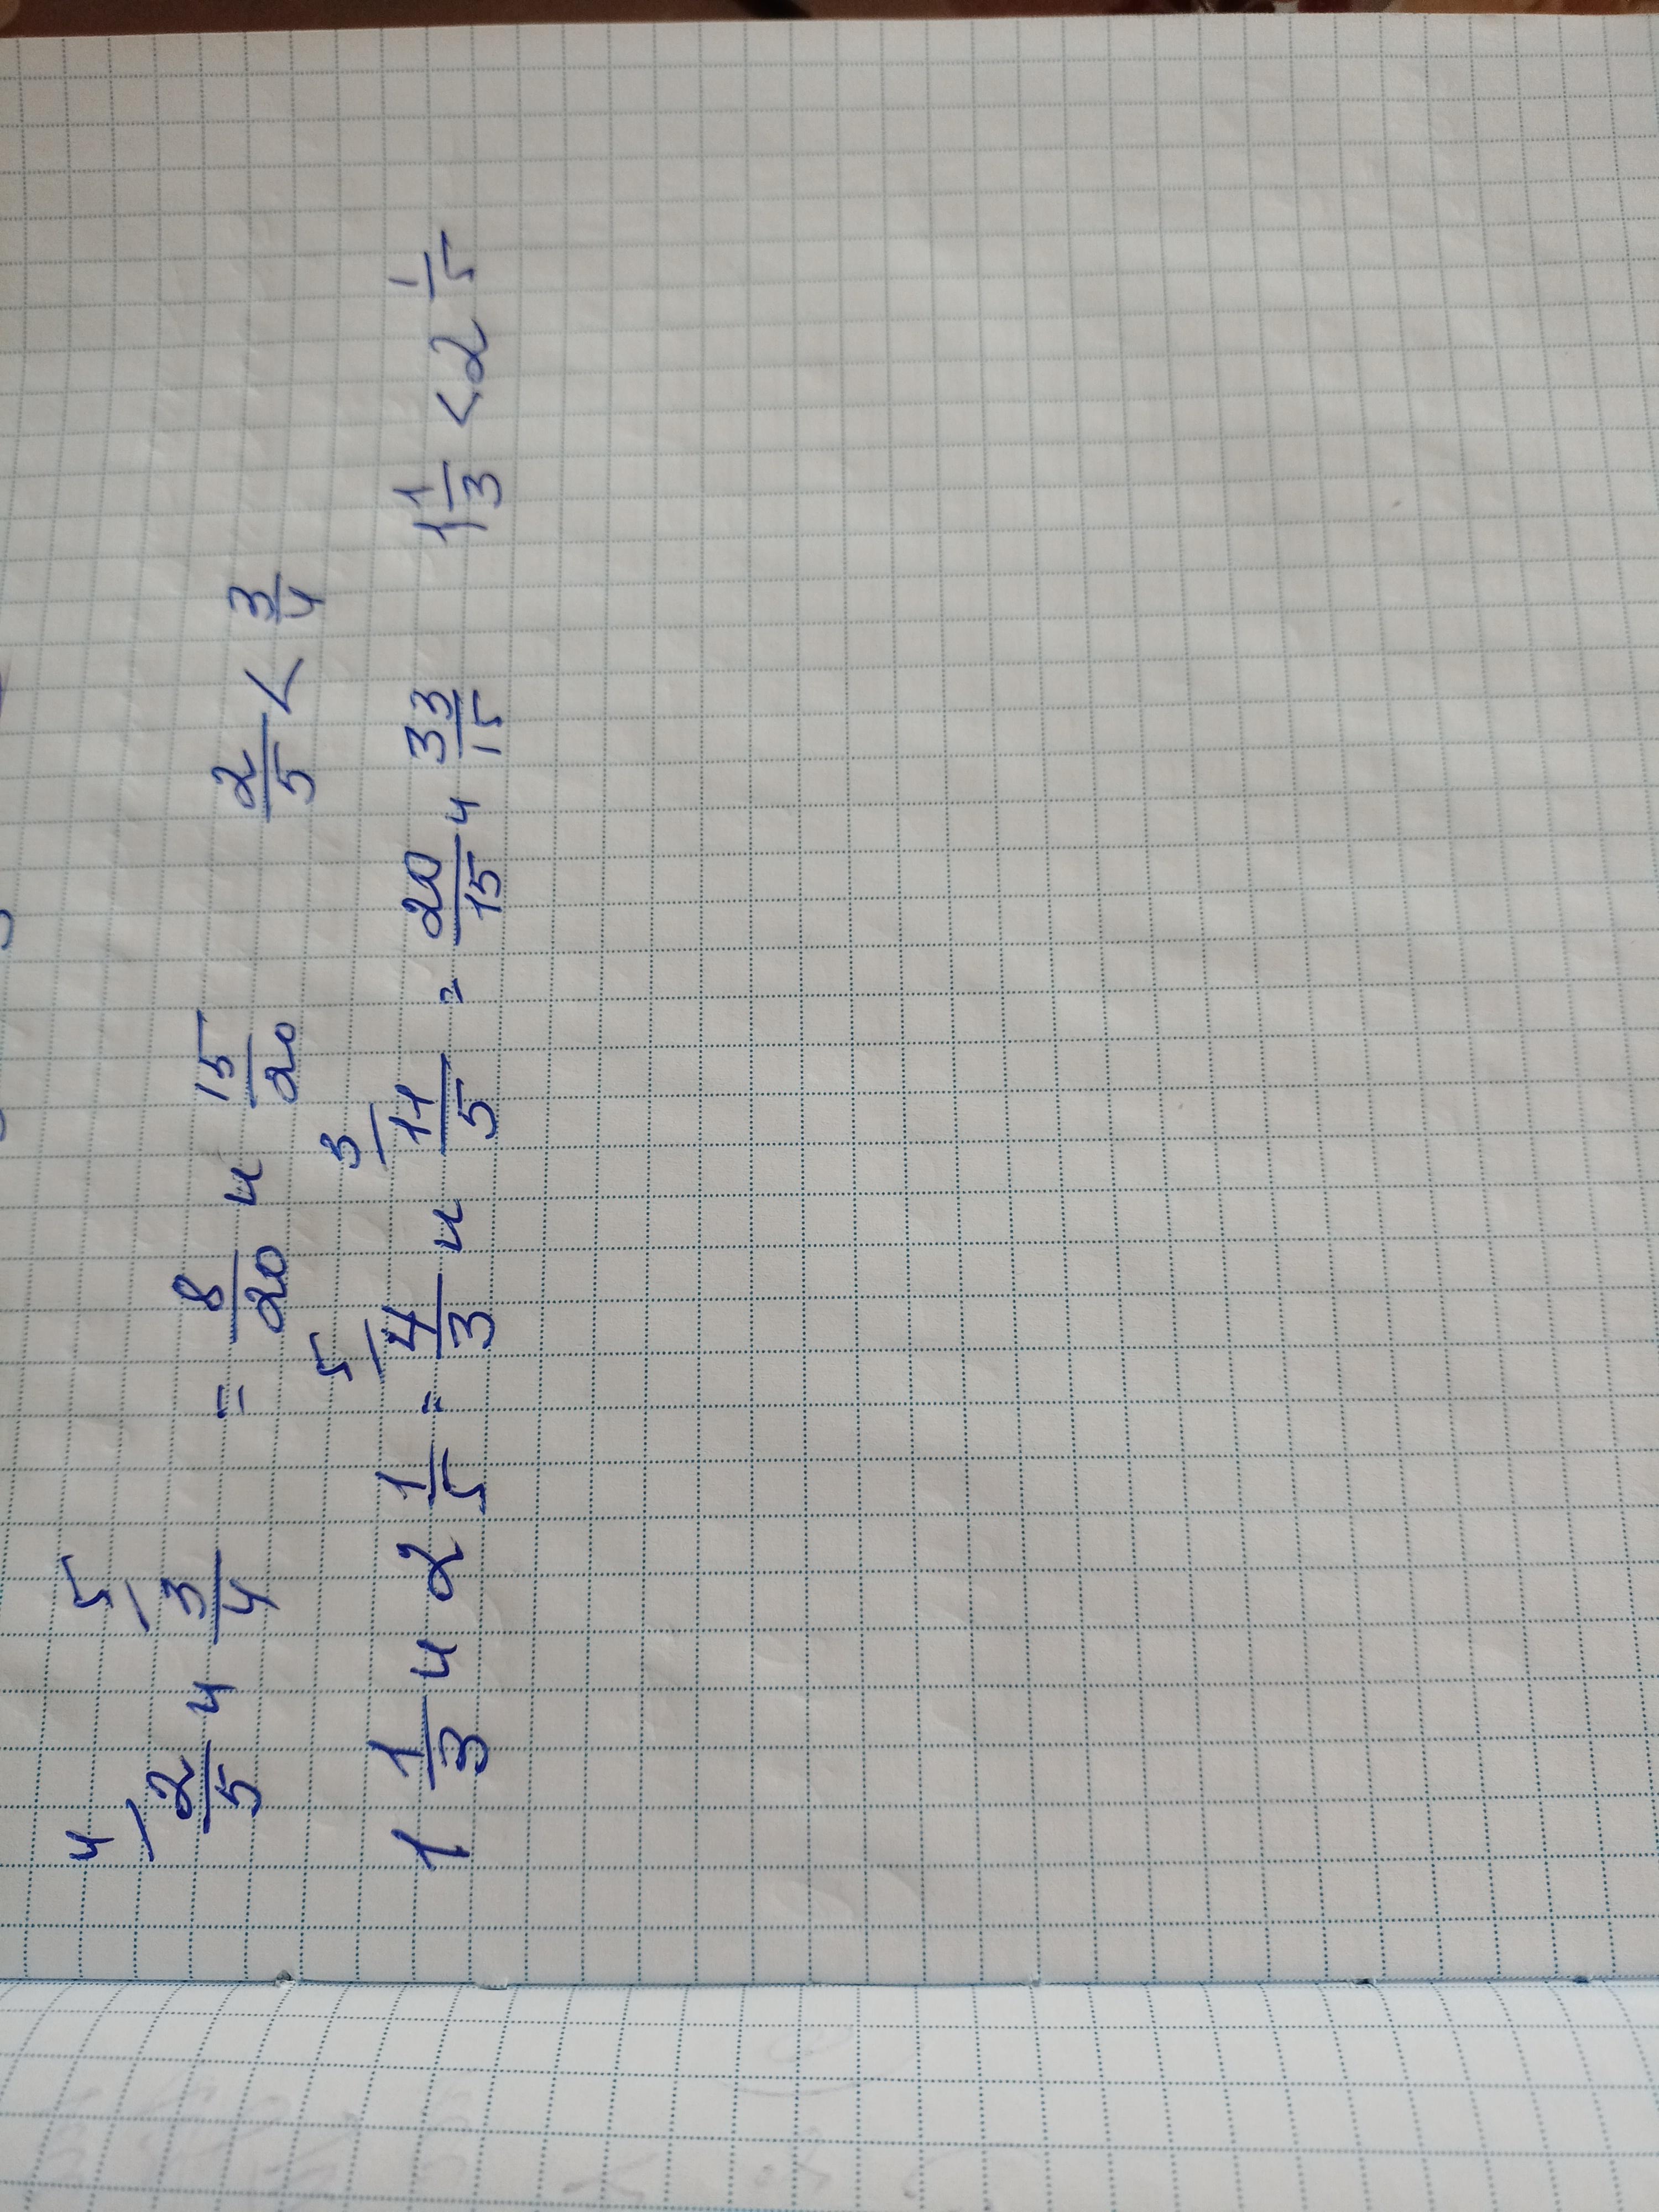 4/ 2/5 и 5/ 3/4 = 8/20 и 15/20 2/5 < 3/4
1 1/3 и 2 1/5 = 5/ 4/3 и 3/ 11/5 = 20/15 и 33/15 1 1/3 < 2 1/5